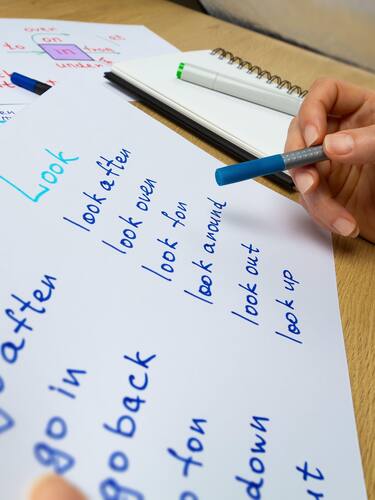 over
on
at
to
in
from
under
Look
look after
look over
look for
look around
look out
look up
after
go in
go back
for
down